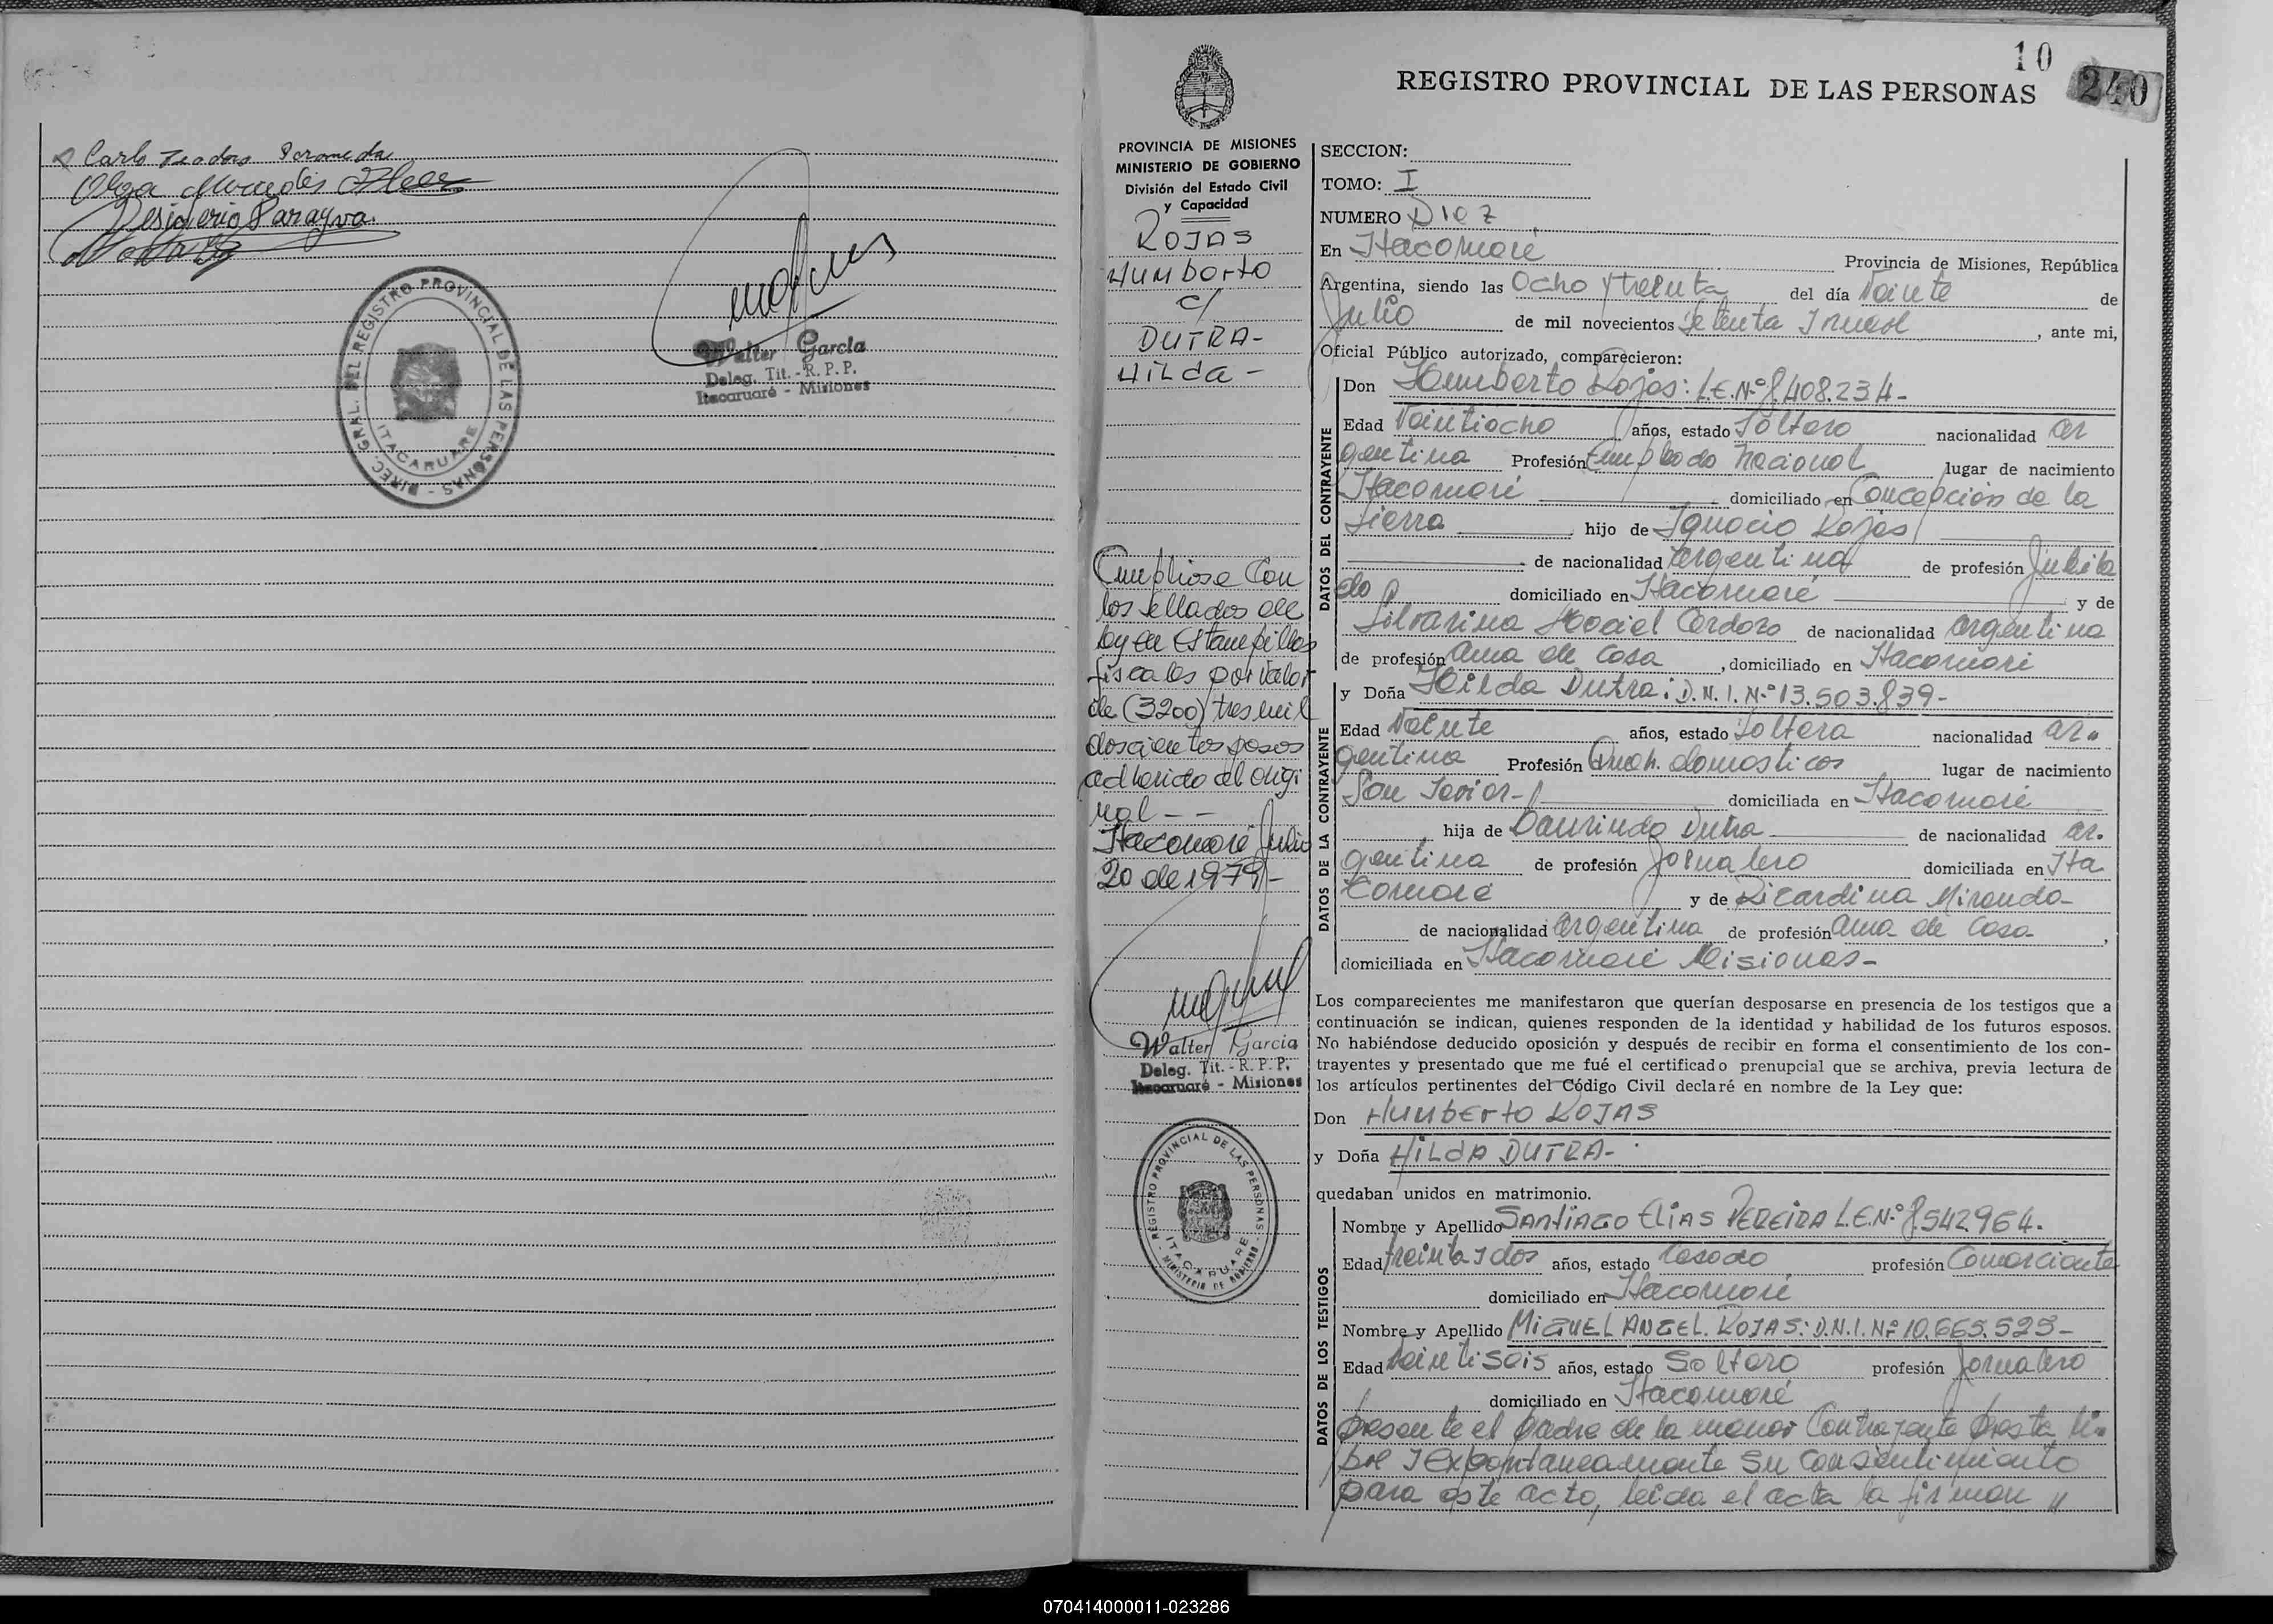 Carlo Teodoro
Olga Mercedes
Desiderio Paragua
DIREC. GRAL. DEL REGISTRO PROVINCIAL DE LAS PERSONAS -
ITACARUARE
Walter Garcia
Deleg. Tit. - R. P. P.
Itacaruaré - Misiones
10
240
REGISTRO PROVINCIAL DE LAS PERSONAS
PROVINCIA DE MISIONES
MINISTERIO DE GOBIERNO
División del Estado Civil
y Capacidad
ROJAS
Humberto
c/
DUTRA-
Hilda-
Cumpliose Con
los sellados de
ley en Estampillas
fiscales por valor
de (3200) tres mil
doscientos pesos
adherido al origi
nal - -
Itacaruaré Julio
20 de 1979-
Walter Garcia
Deleg. Tit. - R. P. P.
Itacaruaré - Misiones
REGISTRO PROVINCIAL DE LAS PERSONAS
ITACARUARE
MINISTERIO DE GOBIERNO
SECCION:
TOMO: I
NUMERO Diez
En Itacaruaré Provincia de Misiones, República
Argentina, siendo las Ocho y treinta del día Veinte de
Julio de mil novecientos Setenta y nueve, ante mi,
Oficial Público autorizado, comparecieron:
DATOS DEL CONTRAYENTE
Don Humberto Rojas: L.E.Nº 8.408.234-
Edad Veintiocho años, estado Soltero nacionalidad ar
gentina Profesión Empleado Nacional lugar de nacimiento
Itacaruaré domiciliado en Concepción de la
Sierra hijo de Ignacio Rojas
de nacionalidad Argentina de profesión Jubila
do domiciliado en Itacaruaré y de
Silvarina Maciel Cardozo de nacionalidad argentina
de profesión ama de Casa, domiciliado en Itacaruaré
DATOS DE LA CONTRAYENTE
y Doña Hilda Dutra: D.N.I. Nº 13.503.839-
Edad Veinte años, estado Soltera nacionalidad ar-
gentina Profesión Queh. domesticos lugar de nacimiento
San Javier- domiciliada en Itacaruaré
hija de Laurindo Dutra de nacionalidad ar-
gentina de profesión Jornalero domiciliada en Ita
Caruaré y de Ricardina Miranda-
de nacionalidad argentina de profesión ama de Casa,
domiciliada en Itacaruaré Misiones-
Los comparecientes me manifestaron que querían desposarse en presencia de los testigos que a
continuación se indican, quienes responden de la identidad y habilidad de los futuros esposos.
No habiéndose deducido oposición y después de recibir en forma el consentimiento de los con-
trayentes y presentado que me fué el certificado prenupcial que se archiva, previa lectura de
los artículos pertinentes del Código Civil declaré en nombre de la Ley que:
Don Humberto ROJAS
y Doña HILDA DUTRA-
quedaban unidos en matrimonio.
DATOS DE LOS TESTIGOS
Nombre y Apellido SANTIAGO ELIAS PEREIRA L.E.Nº 8.542.964.
Edad treinta y dos años, estado Casado profesión Comerciante
domiciliado en Itacaruaré
Nombre y Apellido MIGUEL ANGEL ROJAS: D.N.I. Nº 10.665.525-
Edad Veintiseis años, estado Soltero profesión Jornalero
domiciliado en Itacaruaré
presente el padre de la menor Contrayente presta li-
bre y Expontaneamente su consentimiento
para este acto, leida el acta la firman "
070414000011-023286